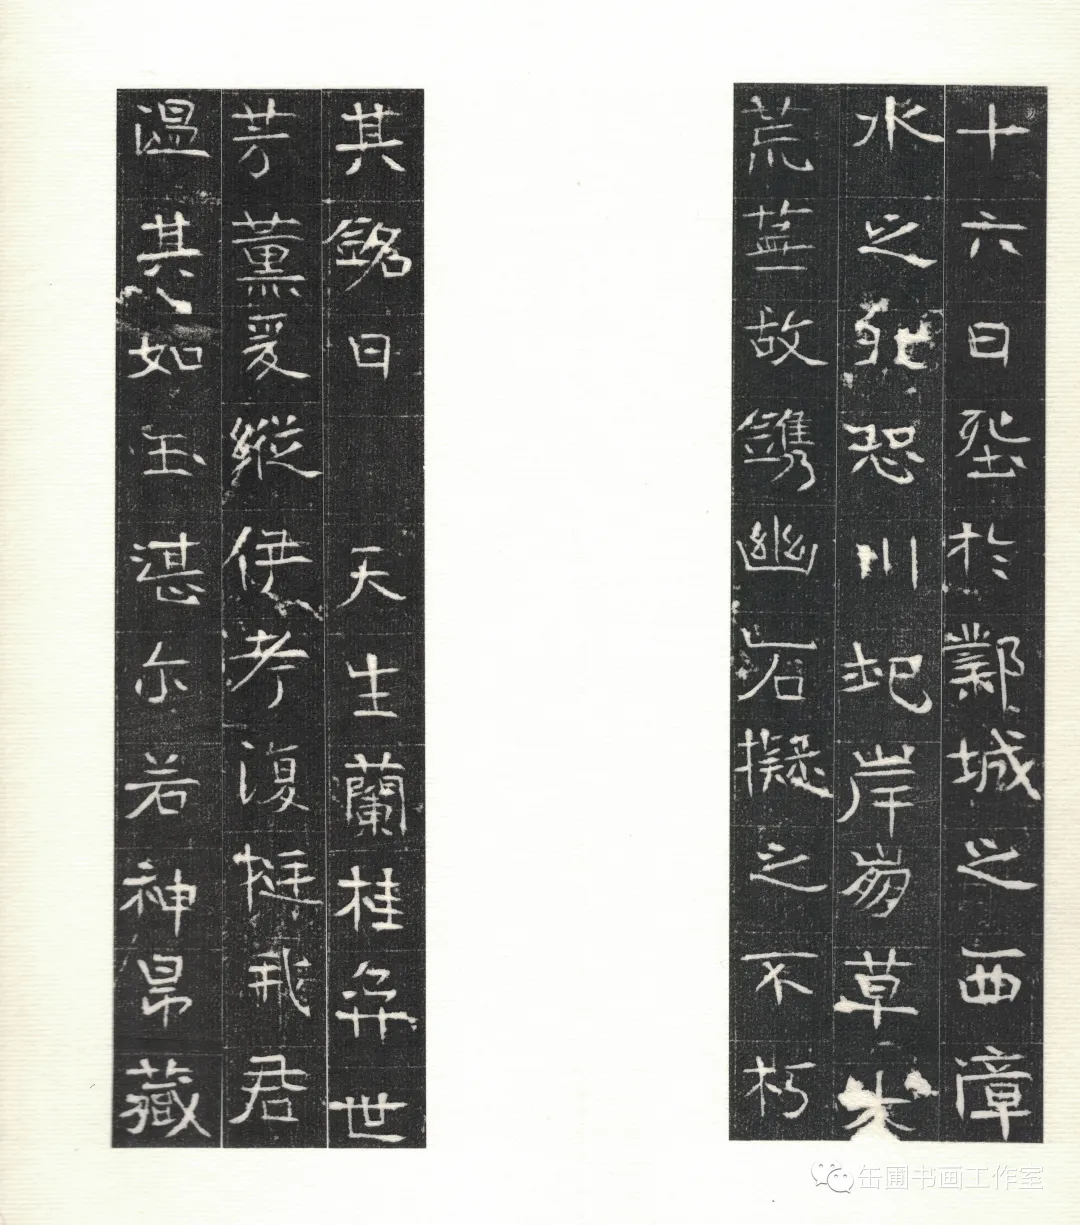 十六日塟於鄴城之西漳
水之恐川圮岸崩草木
荒蕪故鐫幽石擬之不朽
其銘曰 天生蘭桂弈世
芳薰爰縱伊考復挺我君
溫其如玉湛尔若神帛藏
缶圃书画工作室